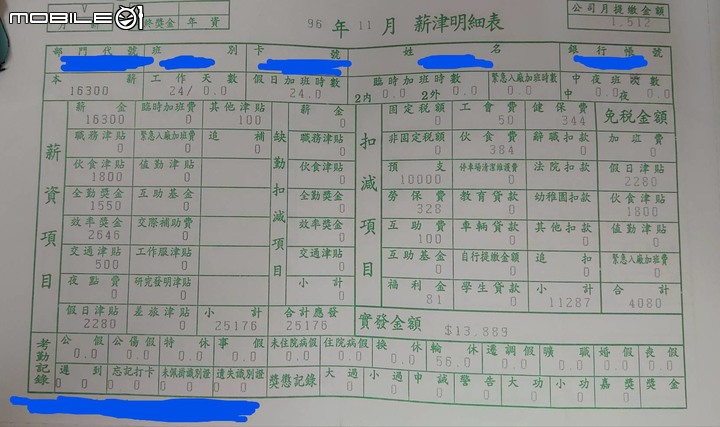 mobile01
獎金 年 資
96 年 11 月 薪津明細表
公司月提繳金額
1,512
部門代號 班別 卡號 姓名 銀行帳號
本薪 工作天數 假日加班時數 臨時加班時數 緊急入廠加班時數 中夜班次數
16300 24/0.0 24.0 2內 0 2外 0 0 中 0 夜 0
薪資項目 缺勤扣減項目 扣減項目 免稅金額
薪金 臨時加班費 其他津貼 薪金 固定稅額 工會費 健保費
16300 0 100 0 0 50 344
職務津貼 緊急入廠加班費 追補 職務津貼 非固定稅額 伙食費 辭職扣款 加班費
0 0 0 0 0 384 0 0
伙食津貼 值勤津貼 伙食津貼 預支 停車場清潔維護費 法院扣款 假日津貼
1800 0 0 10000 0 0 2280
全勤獎金 互助基金 全勤獎金 勞保費 教育貸款 幼稚園扣款 伙食津貼
1550 0 0 328 0 0 1800
效率獎金 交際補助費 效率獎金 互助費 車輛貸款 其他扣款 值勤津貼
2646 0 0 100 0 0 0
交通津貼 工作服津貼 交通津貼 互助基金 自行提繳金額 追扣 緊急入廠加班費
500 0 0 0 0 0 0
夜點費 研究發明津貼 小計 福利金 學生貸款 小計 合計
0 0 0 81 0 11287 4080
假日津貼 差旅津貼 小計 合計應發 實發金額 $13,889
2280 0 25176 25176
考勤記錄
公假 公傷假 特休 事假 未住院病假 住院病假 換休 輪休 遷調假 曠職 婚假 喪假
0.0 0.0 0.0 0.0 0.0 0.0 0.0 56.0 0.0 0.0 0.0 0.0
遲到 忘記打卡 未佩掛識別證 遺失識別證 獎懲記錄 大過 小過 申誡 警告 大功 小功 嘉獎 獎金
0 0 0 0 0 0 0 0 0 0 0 0